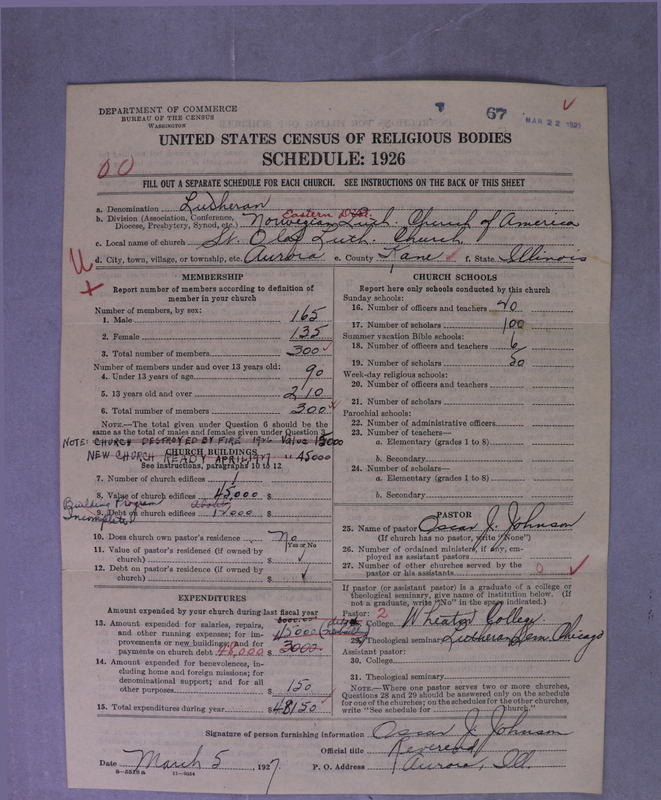 DEPARTMENT OF COMMERCE
BUREAU OF THE CENSUS
WASHINGTON
67
MAR 22 1927
UNITED STATES CENSUS OF RELIGIOUS BODIES
SCHEDULE: 1926
FILL OUT A SEPARATE SCHEDULE FOR EACH CHURCH. SEE INSTRUCTIONS ON THE BACK OF THIS SHEET
a. Denomination Lutheran
b. Division (Association, Conference, Diocese, Presbytery, Synod, etc.) Norwegian Luth. Church of America
Eastern Dist.
c. Local name of church St. Olaf Luth. Church
d. City, town, village, or township, etc. Aurora e. County Kane f. State Illinois
MEMBERSHIP
Report number of members according to definition of
member in your church
Number of members, by sex:
1. Male 165
2. Female 135
3. Total number of members 300
Number of members under and over 13 years old:
4. Under 13 years of age 90
5. 13 years old and over 210
6. Total number of members 300
NOTE.—The total given under Question 6 should be the
same as the total of males and females given under Question 3.
NOTE: CHURCH DESTROYED BY FIRE 1926 Value 15000
NEW CHURCH READY APRIL 1927 " 45000
CHURCH BUILDINGS
See instructions, paragraphs 10 to 12
7. Number of church edifices 1
8. Value of church edifices $ 45,000
Building Program
Incomplete
about
9. Debt on church edifices $
10. Does church own pastor's residence No
Yes or No
11. Value of pastor's residence (if owned by
church) $
12. Debt on pastor's residence (if owned by
church) $
EXPENDITURES
Amount expended by church during last fiscal year
13. Amount expended for salaries, repairs,
and other running expenses; for im-
provements or new building; and for
payments on church debt 48,000 $ 3000
45000
14. Amount expended for benevolences, in-
cluding home and foreign missions; for
denominational support; and for all
other purposes $ 150
15. Total expenditures during year $ 48150
CHURCH SCHOOLS
Report here only schools conducted by this church
Sunday schools:
16. Number of officers and teachers 20
17. Number of scholars 100
Summer vacation Bible schools:
18. Number of officers and teachers 6
19. Number of scholars 50
Week-day religious schools:
20. Number of officers and teachers
21. Number of scholars
Parochial schools:
22. Number of administrative officers
23. Number of teachers—
a. Elementary (grades 1 to 8)
b. Secondary
24. Number of scholars—
a. Elementary (grades 1 to 8)
b. Secondary
PASTOR
25. Name of pastor Oscar J. Johnson
(If church has no pastor, write "None")
26. Number of ordained ministers, if any, em-
ployed as assistant pastors
27. Number of other churches served by the
pastor or his assistants 0
If pastor (or assistant pastor) is a graduate of a college or
theological seminary, give name of institution below. (If
not a graduate, write "No" in the space indicated.)
Pastor: 2
28. College Wheaton College
29. Theological seminary Lutheran Sem. Chicago
Assistant pastor:
30. College
31. Theological seminary
NOTE.—Where one pastor serves two or more churches,
Questions 28 and 29 should be answered only on the schedule
for one of the churches; on the schedules for the other churches,
write "See schedule for church."
Signature of person furnishing information Oscar J. Johnson
Official title Reverend
Date March 5, 1927 P. O. Address Aurora, Ill.
8-5518a 11-9054